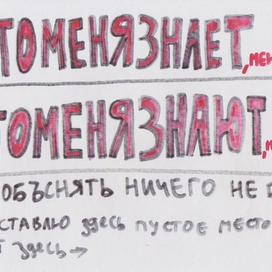 ТОМЕНЯЗНАЕТ,МЕН
ТОМЕНЯЗНАЮТ,
ОБЪСНЯТЬ НИЧЕГО НЕ
СТАВЛЮ ЗДЕСЬ ПУСТОЕ МЕСТО
ЗДЕСЬ →